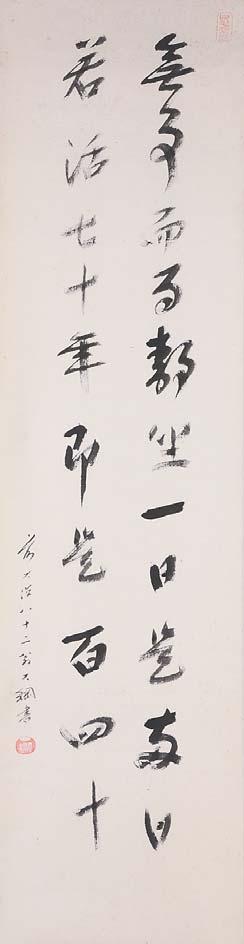 無事而静坐一日是両日
若活七十年即是百四十
前大徳八十二翁大綱書